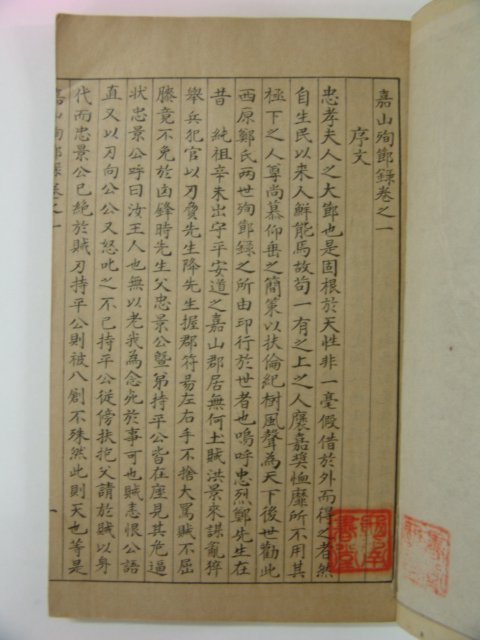 嘉山殉節錄卷之一
序文
忠孝夫人之大節也是固根於天性非一毫假借於外而得之者然
自生民以來人鮮能焉故苟一有之上之人襃嘉奬恤靡所不用其
極下之人尊尚慕仰垂之簡策以扶倫紀樹風聲為天下後世勸此
西原鄭氏兩世殉節錄之所由印行於世者也嗚呼忠烈鄭先生在
昔 純祖辛未出守平安道之嘉山郡居無何土賊洪景來謀亂猝
舉兵犯官以刃脅先生降先生握郡符易左右手不捨大罵賊不屈
膝竟不免於凶鋒時先生父忠景公曁弟持平公皆在座見其危逼
狀忠景公呼曰汝王人也無以老我為念死於事可也賊恚恨公語
直又以刃向公公又怒叱之不已持平公從傍扶抱父請於賊以身
代而忠景公已絶於賊刃持平公則被八創不殊然此則天也等是
嘉山殉節錄卷之一
一